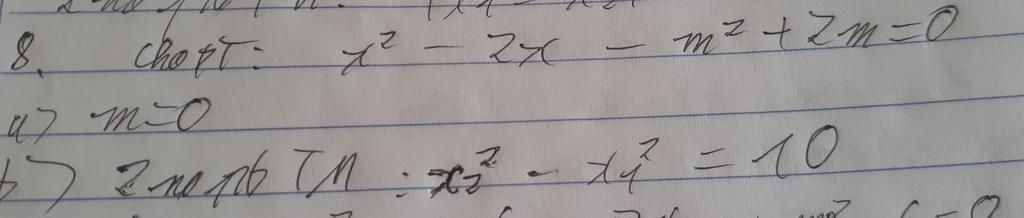 8. Cho pT: x² - 2x - m² + 2m = 0
a) m = 0
b) 2 no pb TM : x₂² - x₁² = 10